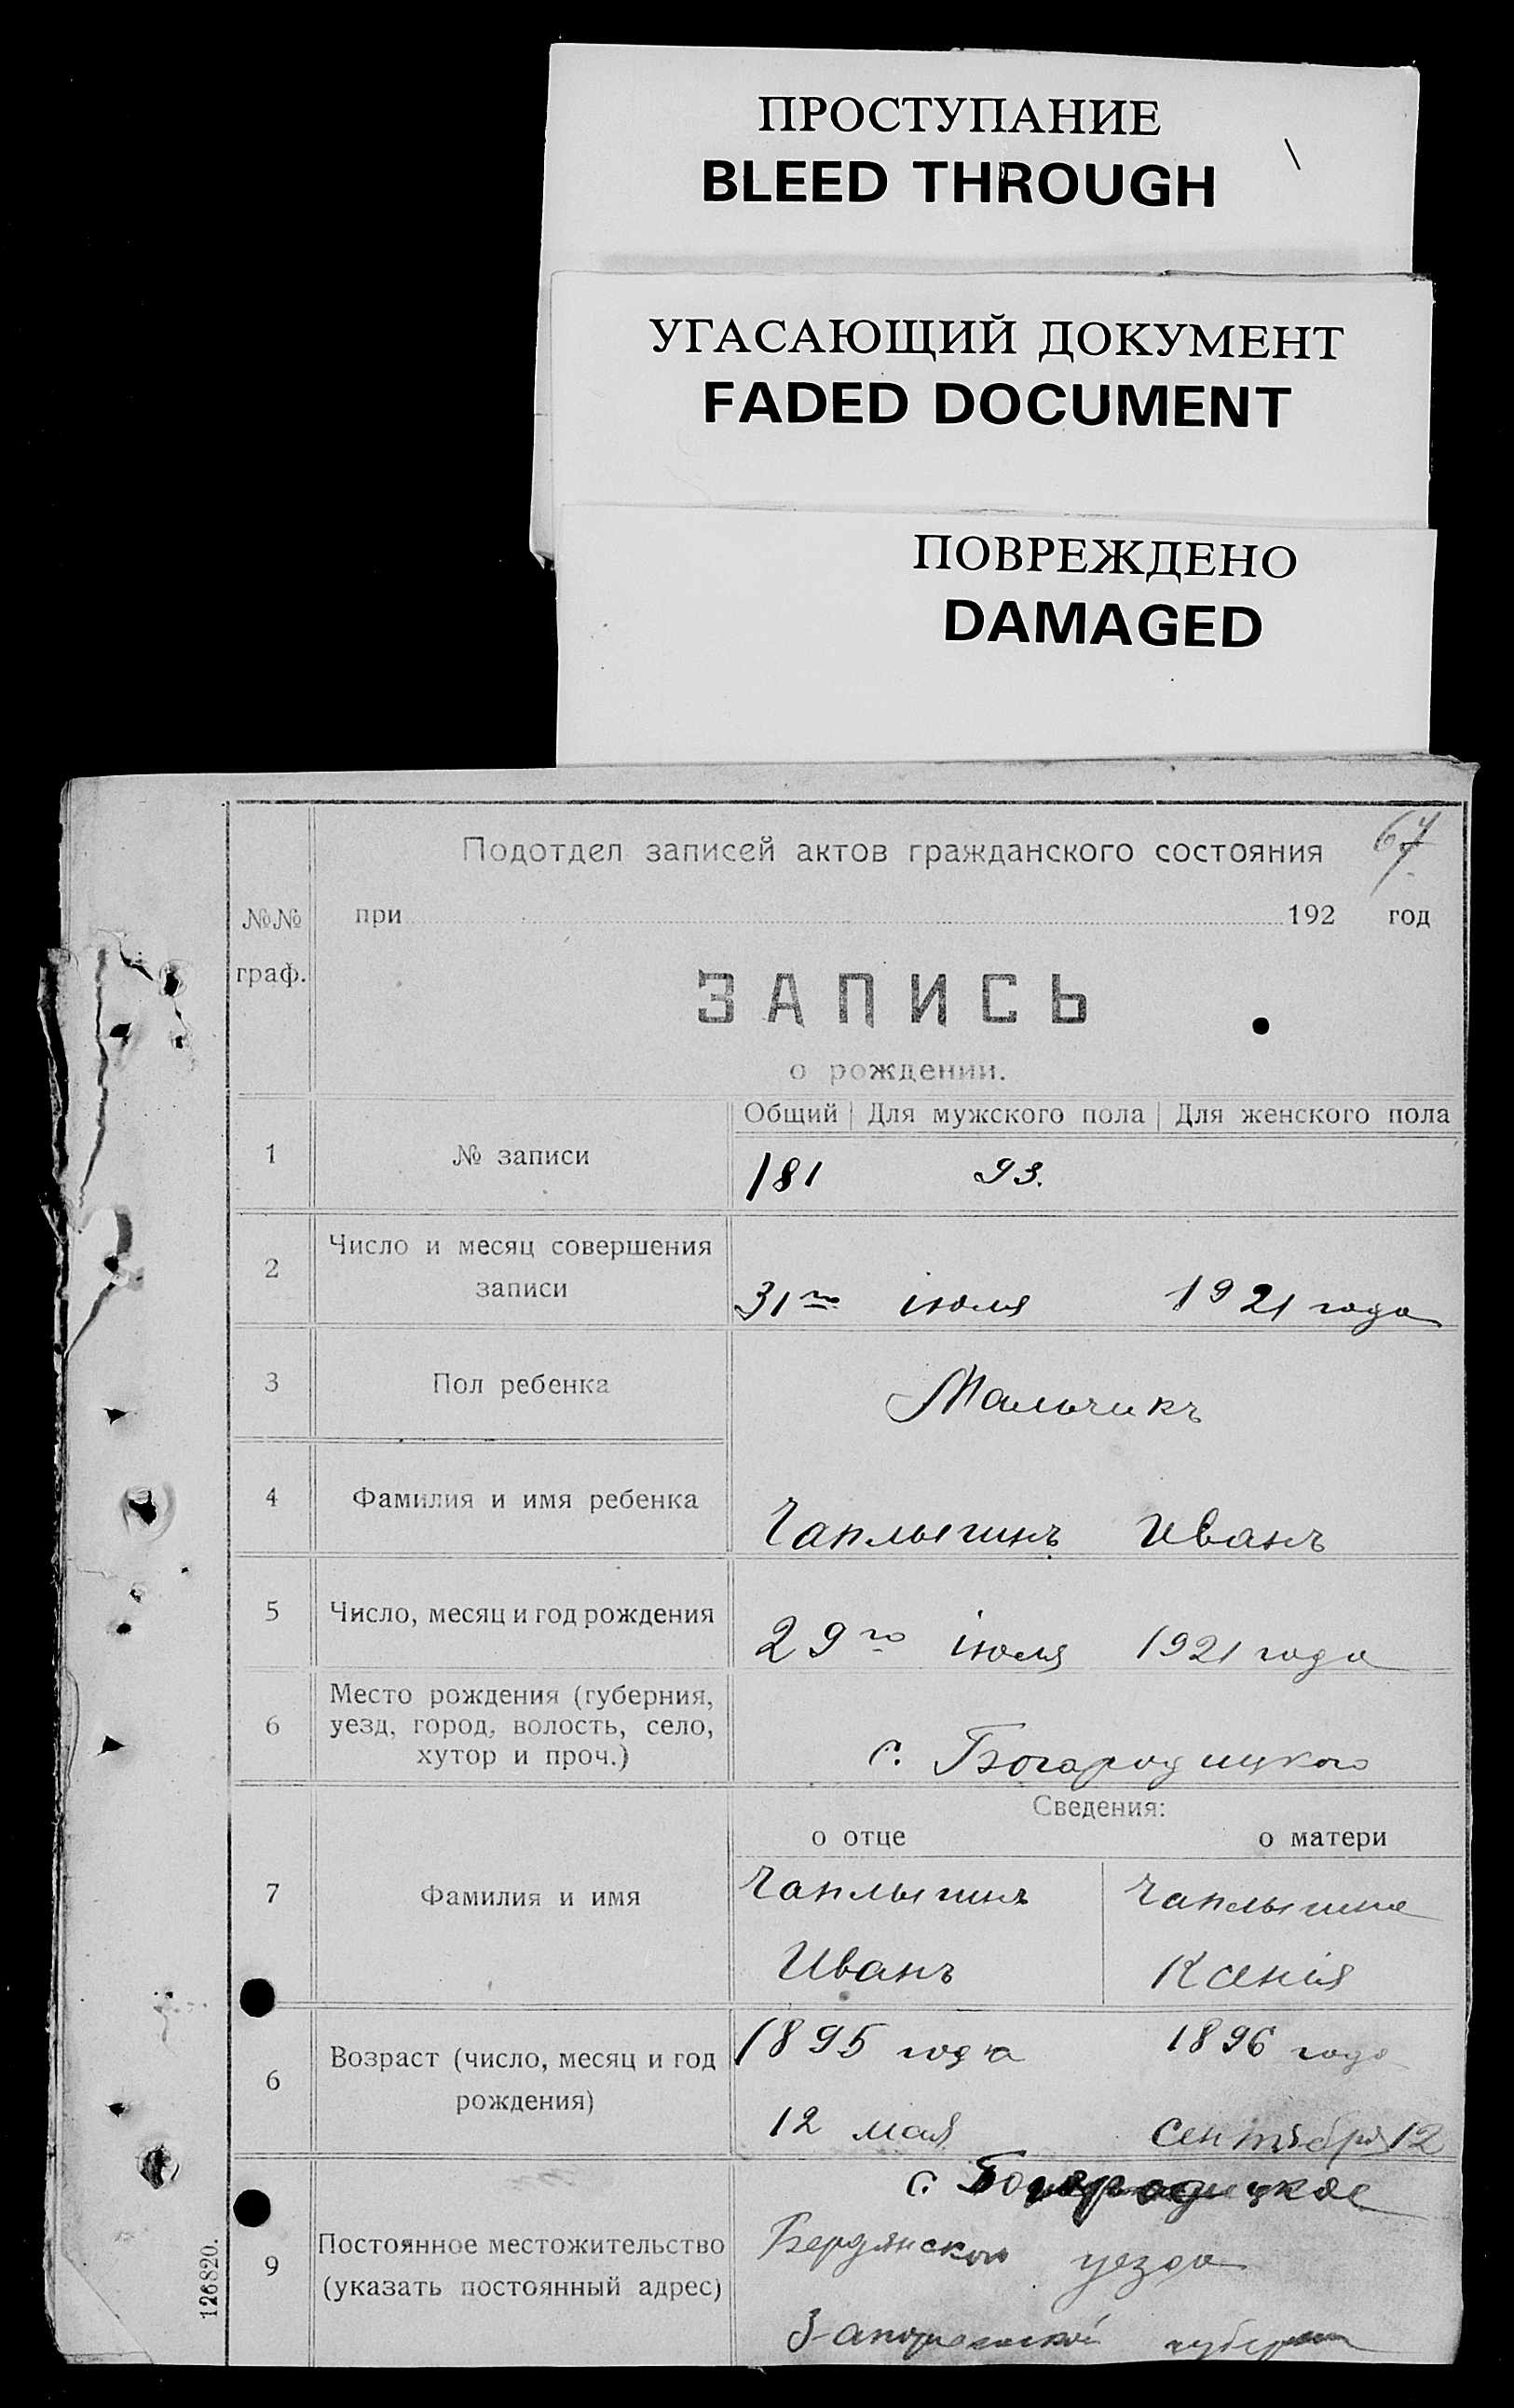 ПРОСТУПАНИЕ
BLEED THROUGH
УГАСАЮЩИЙ ДОКУМЕНТ
FADED DOCUMENT
ПОВРЕЖДЕНО
DAMAGED
67
Подотдел записей актов гражданского состояния
№№ граф.
при 192 год
ЗАПИСЬ
о рождении.
Общий Для мужского пола Для женского пола
1 № записи 181 93.
2 Число и месяц совершения
записи
31го iюля 1921 года
3 Пол ребенка Мальчикъ
4 Фамилия и имя ребенка Чаплыгинъ Иванъ
5 Число, месяц и год рождения 29го iюля 1921 года
6 Место рождения (губерния,
уезд, город, волость, село,
хутор и проч.)
с. Богародицкого
Сведения:
о отце о матери
7 Фамилия и имя
Чаплыгинъ Чаплыгина
Иванъ Ксенiя
6 Возраст (число, месяц и год
рождения)
1895 года 1896 года
12 мая Сентября 12
9 Постоянное местожительство
(указать постоянный адрес)
с. Богородицкое
Бердянского уезда
Запорожской губернии
126820.